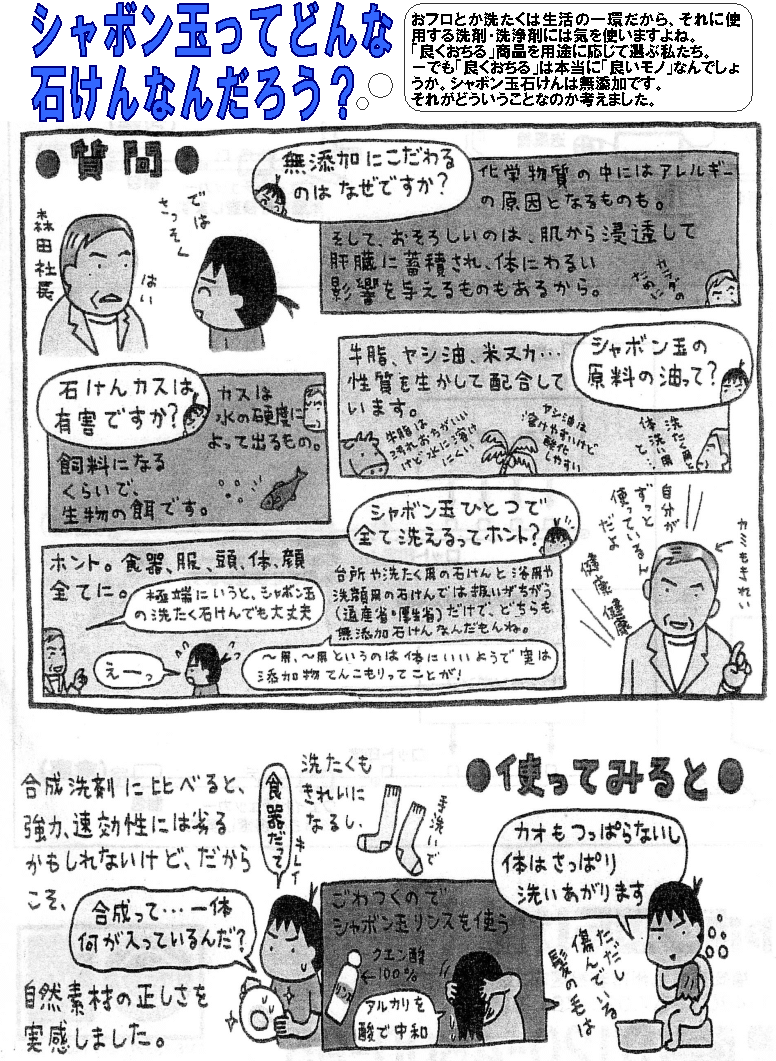 シャボン玉ってどんな
石けんなんだろう？
おフロとか洗たくは生活の一環だから、それに使
用する洗剤・洗浄剤には気を使いますよね。
「良くおちる」商品を用途に応じて選ぶ私たち。
ーでも「良くおちる」は本当に「良いモノ」なんでしょ
うか。シャボン玉石けんは無添加です。
それがどういうことなのか考えました。
●質問●
森田社長
はい
では
さっそく
無添加にこだわる
のはなぜですか？
化学物質の中にはアレルギー
の原因となるものも。
そして、おそろしいのは、肌から浸透して
肝臓に蓄積され、体にわるい
影響を与えるものもあるから。
カラダの
ために
シャボン玉の
原料の油って？
牛脂、ヤシ油、米ヌカ…
性質を生かして配合して
います。
牛脂は
汚れおちがいい
けど水に溶け
にくい
ヤシ油は
溶けやすいけど
酸化
しやすい
洗たく用
体洗い用
と…
石けんカスは
有害ですか？
カスは
水の硬度に
よって出るもの。
飼料になる
くらいで、
生物の餌です。
シャボン玉ひとつで
全て洗えるってホント？
ホント。食器、服、頭、体、顔
全てに。
極端にいうと、シャボン玉
の洗たく石けんでも大丈夫
えーっ
台所や洗たく用の石けんと浴用や
洗顔用の石けんでは扱いがちがう
（通産省・厚生省）だけで、どちらも
無添加石けんなんだもんね。
〜用、〜用というのは体にいいようで実は
添加物てんこもりってことが！
自分が
ずっと
使っているん
だよ
健康
健康
カミもきれい
●使ってみると●
合成洗剤に比べると、
強力、速効性には劣る
かもしれないけど、だから
こそ、
合成って…一体
何が入っているんだ？
自然素材の正しさを
実感しました。
食器だって
キレイ
洗たくも
きれいに
なるし、
手洗いで
ごわつくので
シャボン玉リンスを使う
クエン酸
←100%
リンス
アルカリを
酸で中和
カオもつっぱらないし
体はさっぱり
洗いあがります
ただし
傷んでいる
髪の毛は